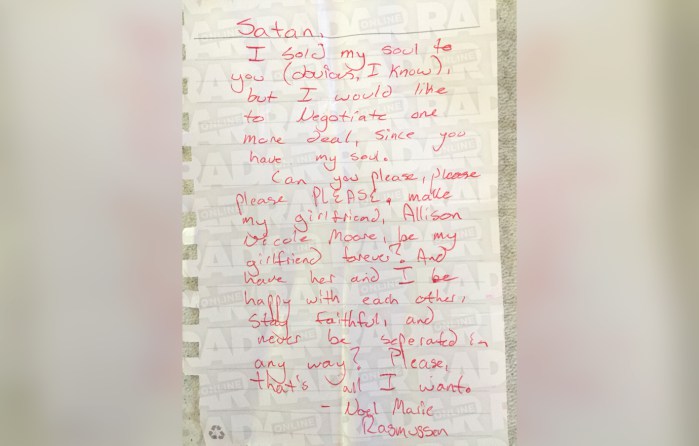 Satan,
I sold my soul to
you (obvious, I know),
but I would like
to Negotiate one
more deal, since you
have my soul.
Can you please, please
please PLEASE, make
my girlfriend, Allison
Nicole Moore, be my
girlfriend forever? And
have her and I be
happy with each other,
stay faithful, and
never be seperated in
any way? Please,
that's all I want.
- Noel Marie
Rasmussen
RADAR
ONLINE